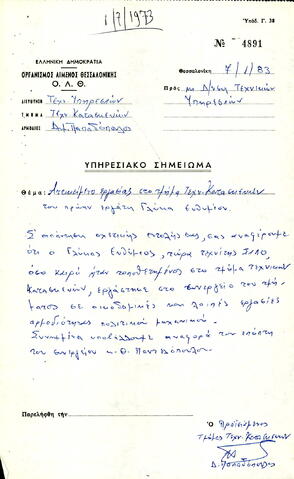 1/7/1973
Ὑπόδ. Γ. 38
ΕΛΛΗΝΙΚΗ ΔΗΜΟΚΡΑΤΙΑ
ΟΡΓΑΝΙΣΜΟΣ ΛΙΜΕΝΟΣ ΘΕΣΣΑΛΟΝΙΚΗΣ
Ο. Λ. Θ.
ΔΙΕΥΘΥΝΣΙΣ Τεχ. Υπηρεσιών
ΤΜΗΜΑ Τεχν. Κατασκευών
ΑΡΜΟΔΙΟΣ Δημ. Παπαδόπουλος
№ 4891
Θεσσαλονίκη 7/1/83
Πρὸς τη Δ/νση Τεχνικών
Υπηρεσιών
ΥΠΗΡΕΣΙΑΚΟ ΣΗΜΕΙΩΜΑ
Θέμα: Αντικείμενο εργασίας στο τμήμα Τεχν. Κατασκευών
του πρώην εργάτη Γκίκα Ευθυμίου.
Σ' απάντηση σχετικής εντολής σας, σας αναφέρουμε
ότι ο Γκίκας Ευθύμιος, τώρα τεχνίτης
όσο καιρό ήταν τοποθετημένος στο τμήμα Τεχνικών
Κατασκευών, εργάστηκε στο συνεργείο του τμή-
ματος σε οικοδομικές και λοιπές εργασίες
αρμοδιότητας πολιτικού μηχανικού.
Συνημμένα υποβάλλουμε αναφορά του επόπτη
του συνεργείου κ. Θ. Παντελόπουλου.
Παρελήφθη τὴν
Ο Προϊστάμενος
Τμήμ. Τεχν. Κατασκευών
Δ. Παπαδόπουλος